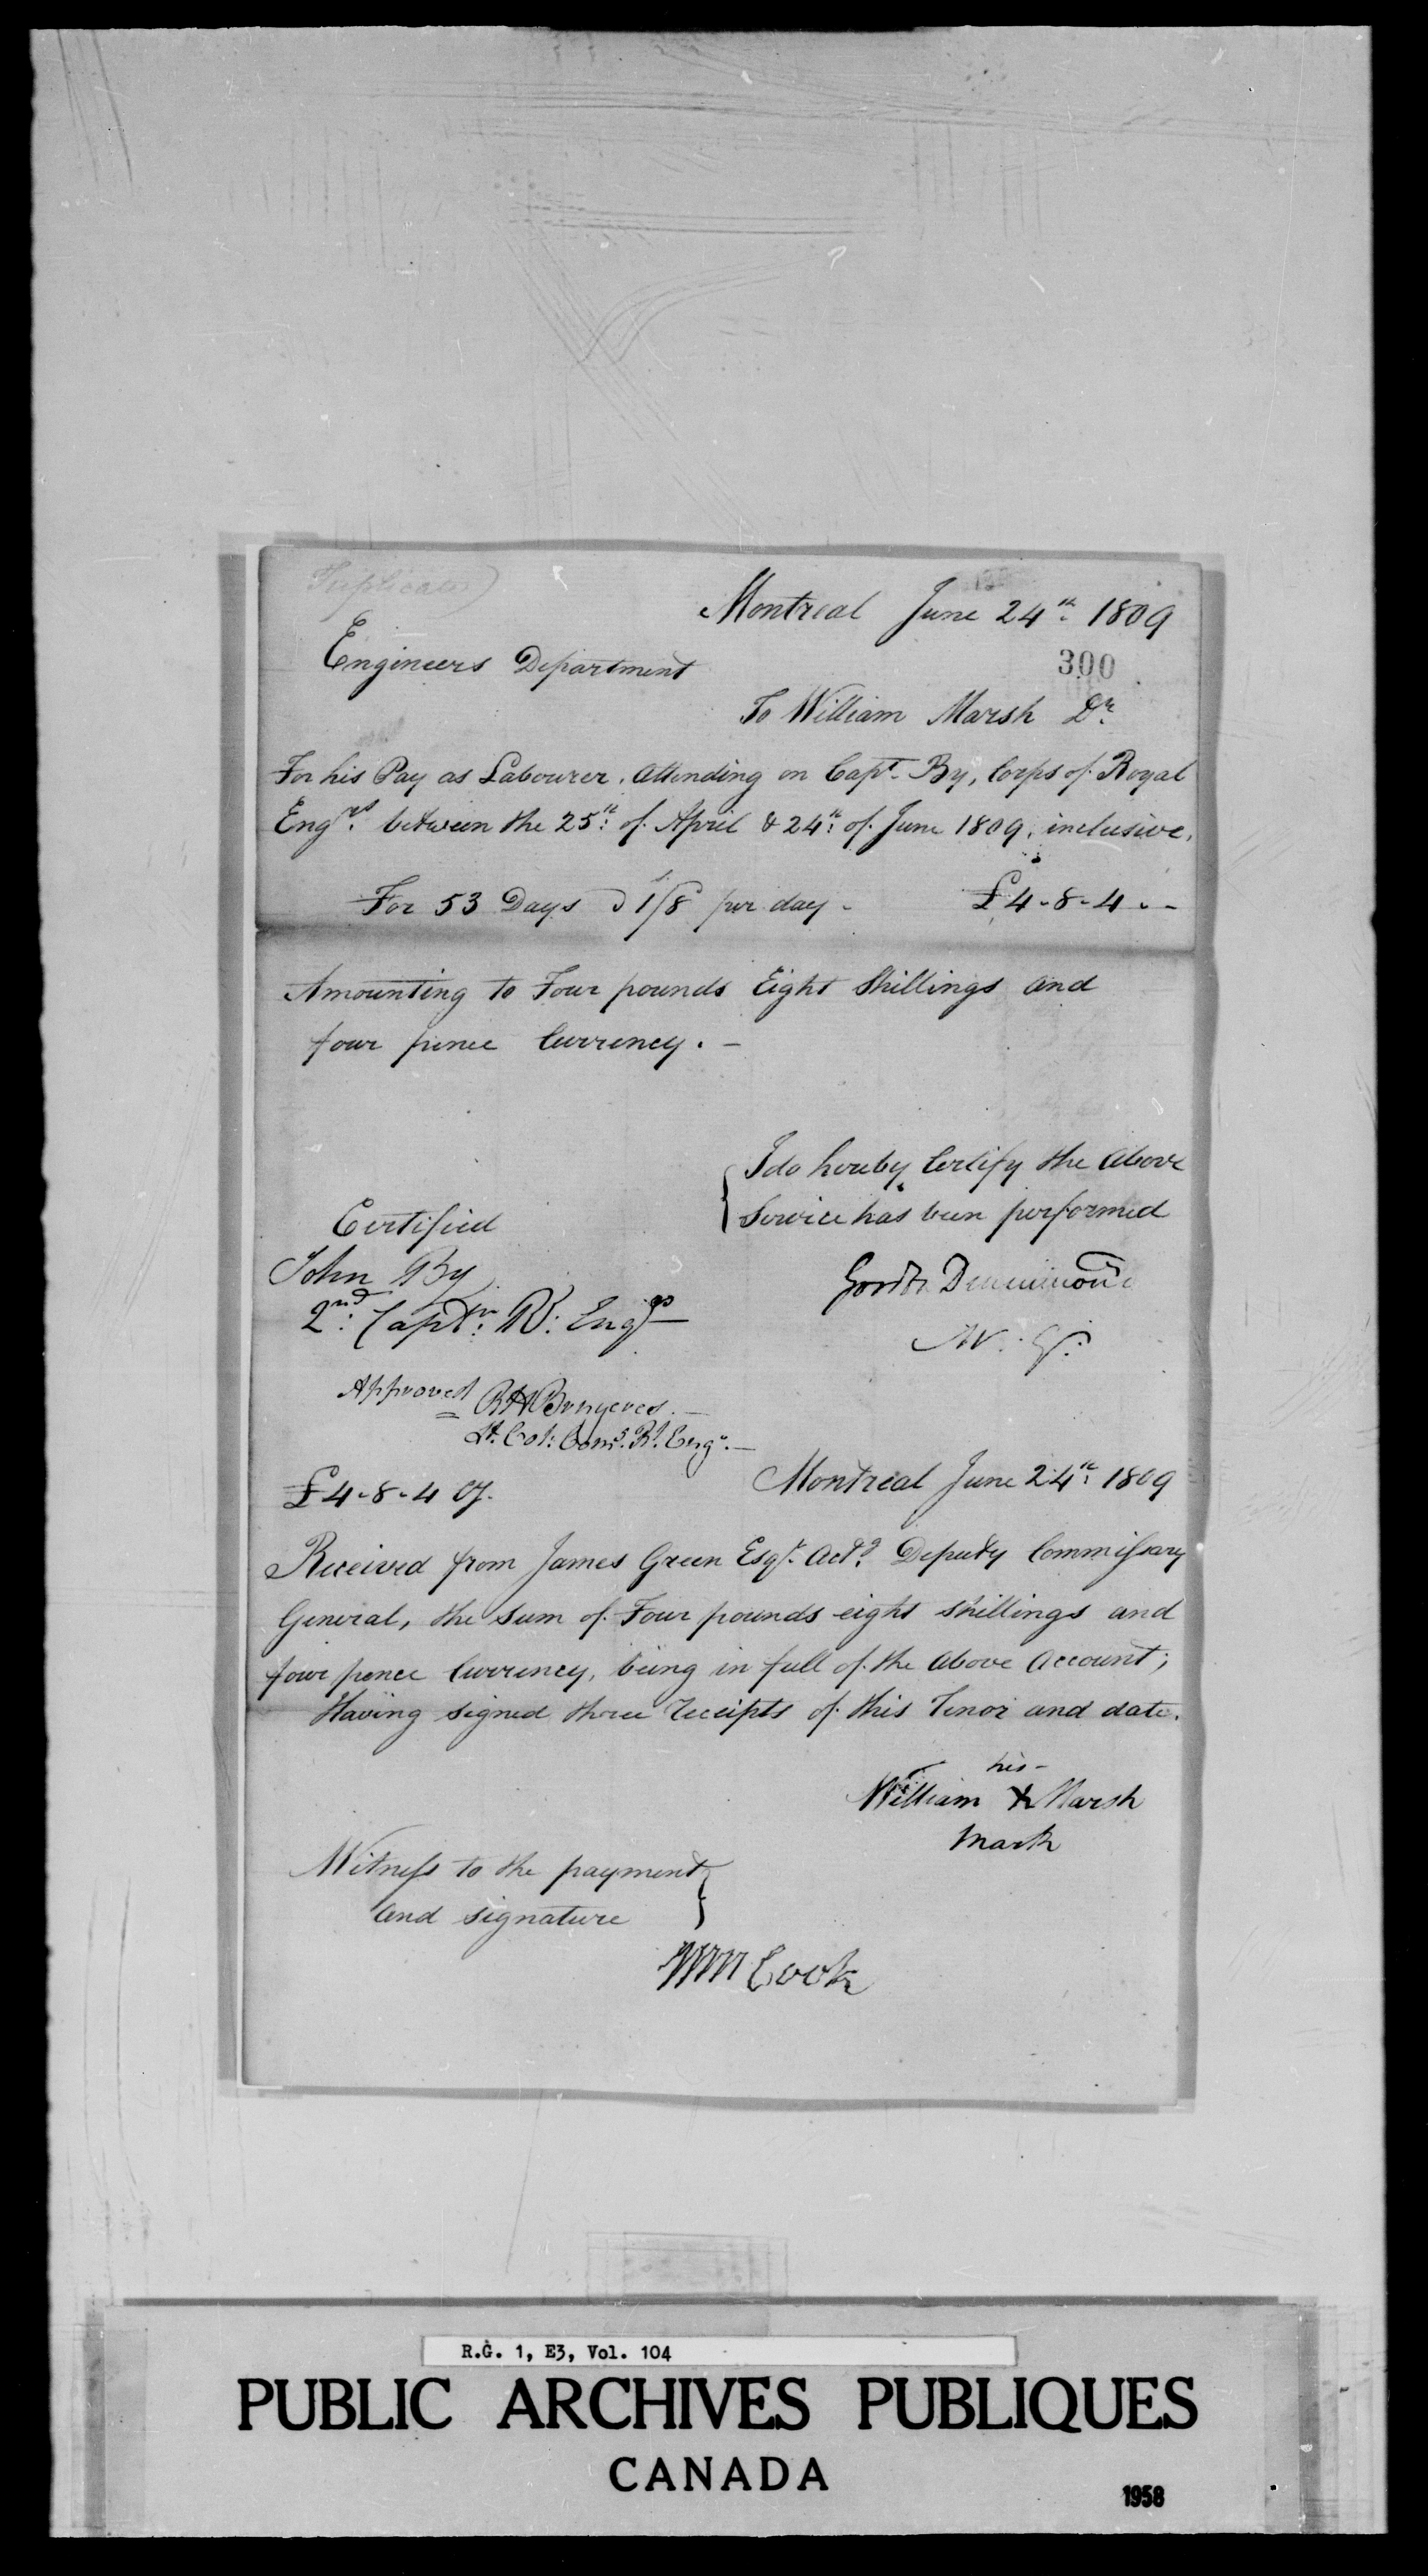 Triplicate)
Montreal June 24th 1809
Engineers Department
300
To William Marsh Dr
For his Pay as Labourer, Attending on Capt. By, Corps of Royal
Engrs. between the 25th of April & 24th of June 1809, inclusive.
For 53 Days @ 1/8 per day - £4-8-4 - -
Amounting to Four pounds Eight Shillings and
four pence Currency. -
I do hereby Certify the Above
Service has been performed
Certified
John By
2nd: Captn: Rl: Engrs
Drummond
Approved RH Bruyeres. -
Lt. Col: Comg. Rl. Engrs. -
£4-8-4 Cy.
Montreal June 24th 1809
Received from James Green Esqr. Actg. Deputy Commissary
General, the Sum of Four pounds eight shillings and
four pence Currency, being in full of the Above Account;
Having signed three Receipts of this Tenor and date.
his -
William X Marsh
Mark
Witness to the payment
And signature
Wm Cook
R.G. 1, E3, Vol. 104
PUBLIC ARCHIVES PUBLIQUES
CANADA
1958